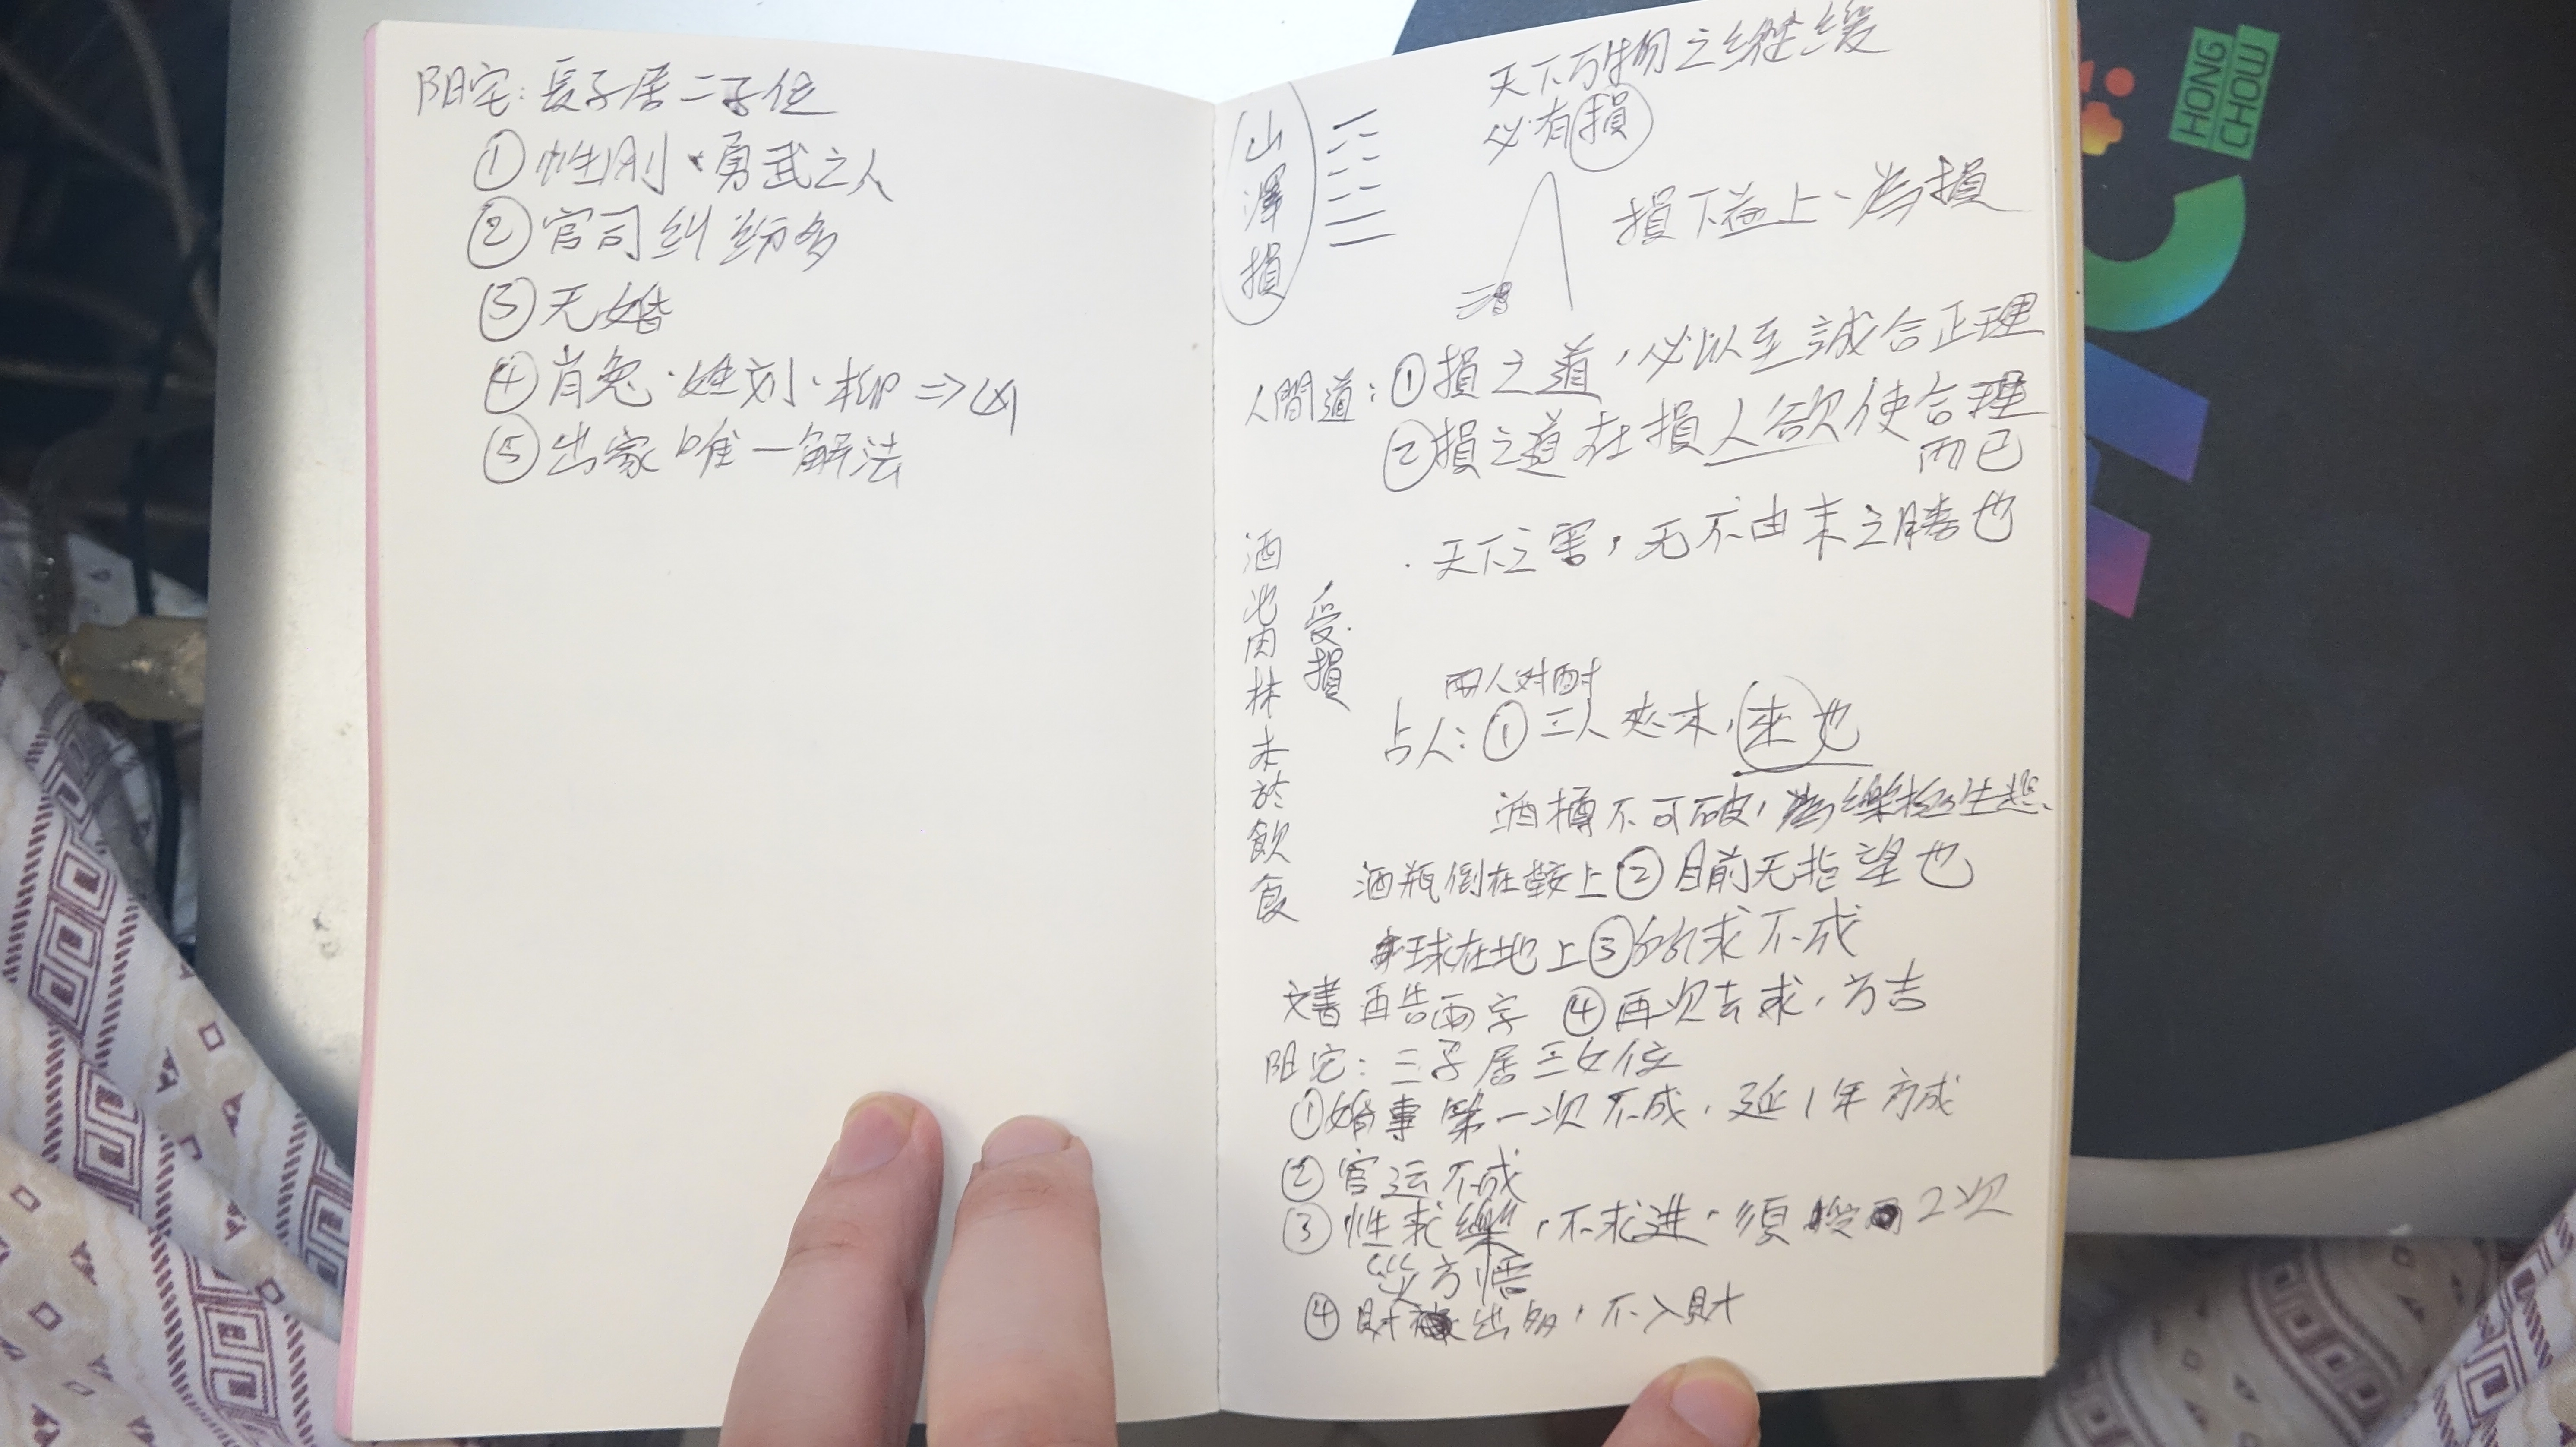 阳宅：長子居二子位
① 性刚、勇武之人
② 官司纠紛多
③ 无婚
④ 肖兔、姓刘、柳 => 凶
⑤ 出家唯一解法
山澤損
天下万物之繼缓
必有損
損下益上、為損
人間道：①損之道，必以至誠合正理
②損之道在損人欲使合理
而已
·天下之害，无不由末之勝也
酒池肉林本於飲食
受損
兩人对酌
占人：①二人夾木，來也
酒樽不可破，為樂極生悲
酒瓶倒在鞍上 ② 目前无指望也
球在地上 ③ 所求不成
文書再告兩字 ④ 再次去求，方吉
阳宅：三子居三女位
①婚事第一次不成，延1年方成
② 官运不成
③ 性求樂，不求進，須 2次
災方悟
④ 財 出多，不入財
HONG
CHOW